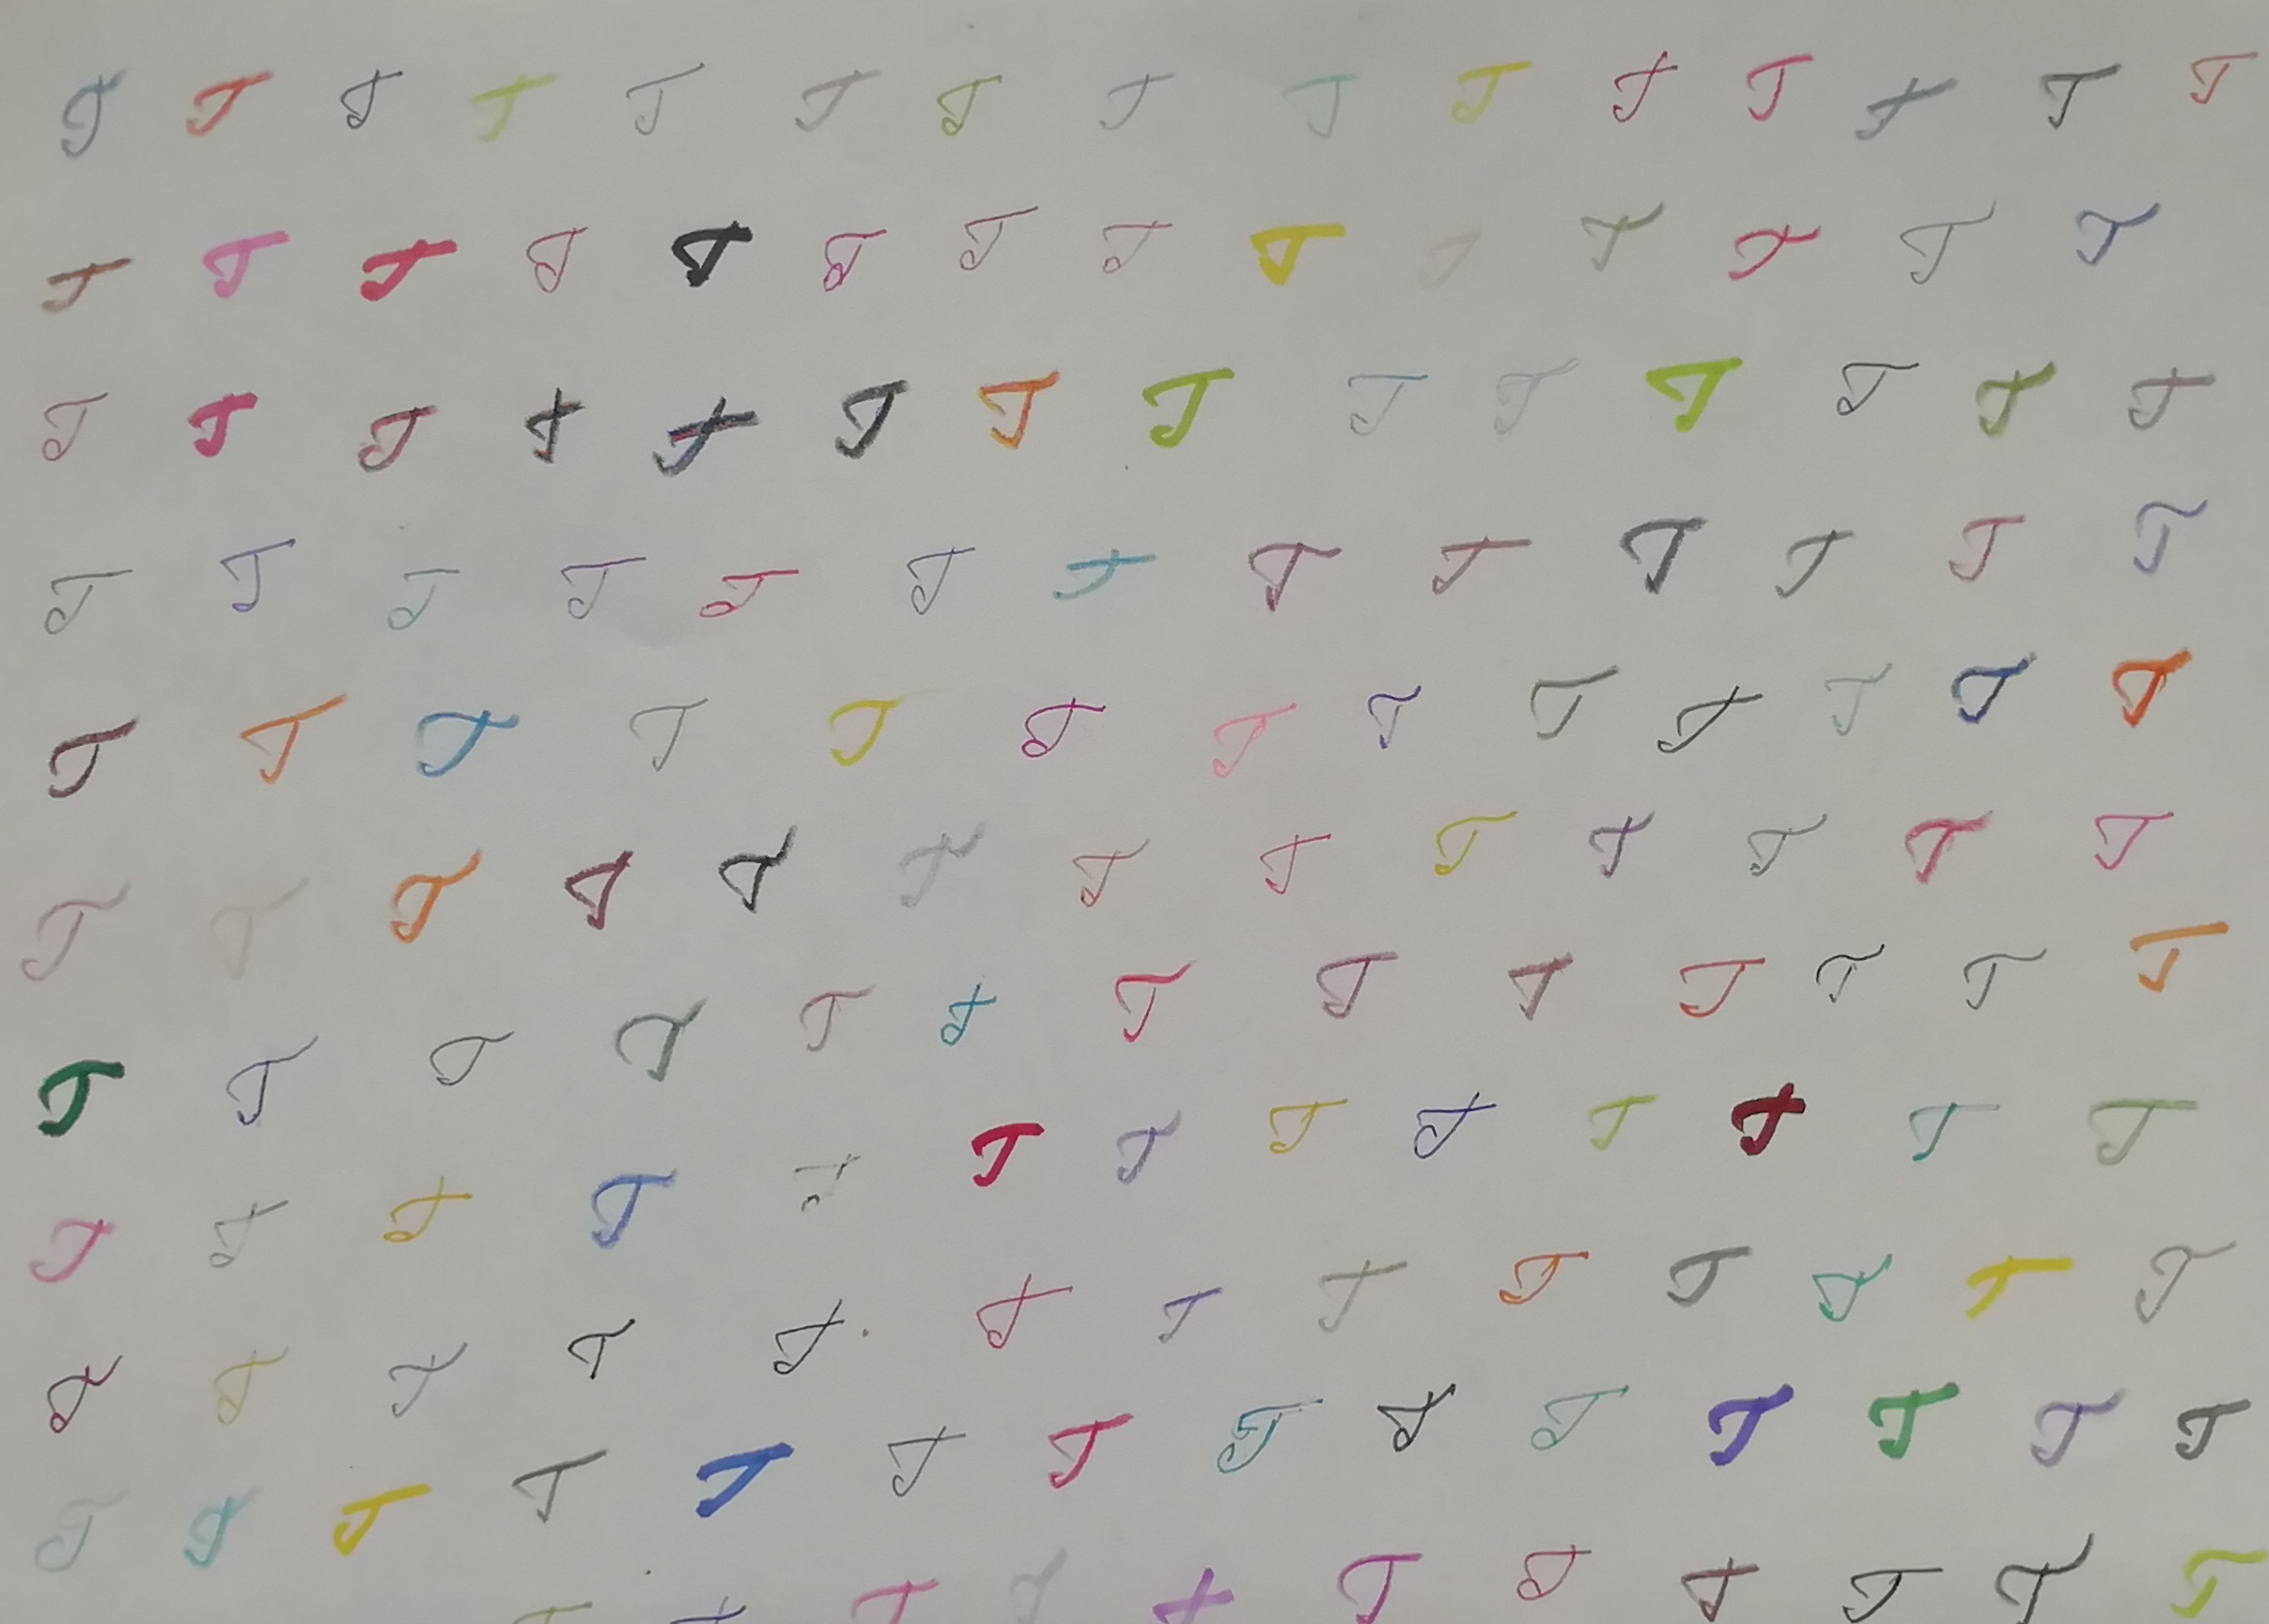 T T T T T T T T T T T T T T T
T T T T T T T T T T T T T T
T T T T T T T T T T T T T T
T T T T T T T T T T T T T
T T T T T T T T T T T T T
T T T T T T T T T T T T T
T T T T T T T T T T T T T
T T T T T T T T T T T T T
T T T T T T T T T T T T T
T T T T T T T T T T T T T T
T T T T T T T T T